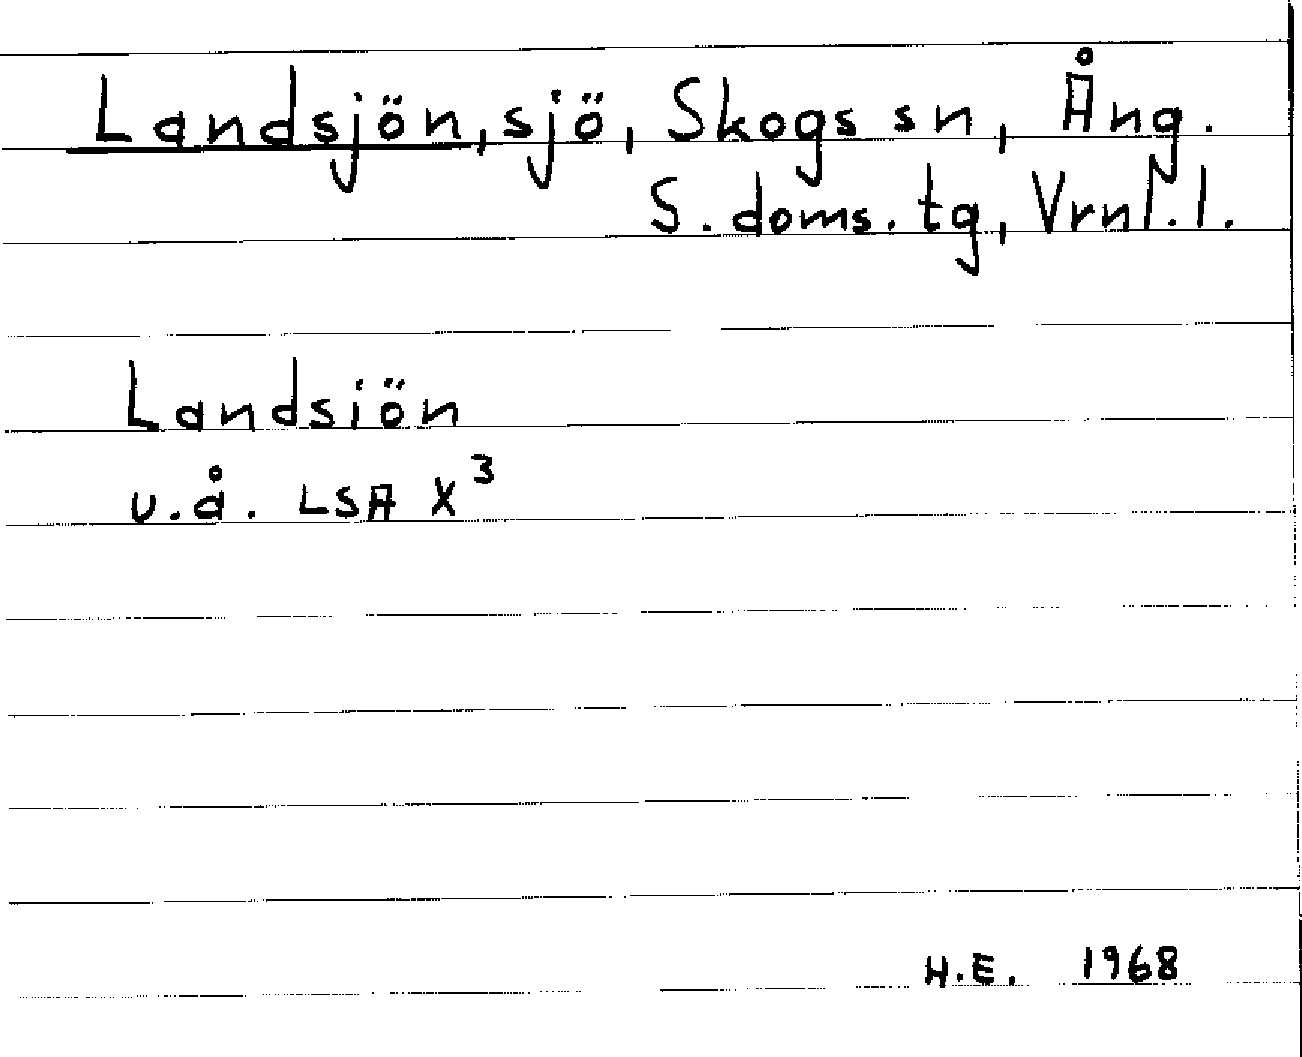 Landsjön, sjö, Skogs sn, Ång.
S. doms. tg, Vrnl. l.
Landsiön
u.å. LSA X³
H.E. 1968